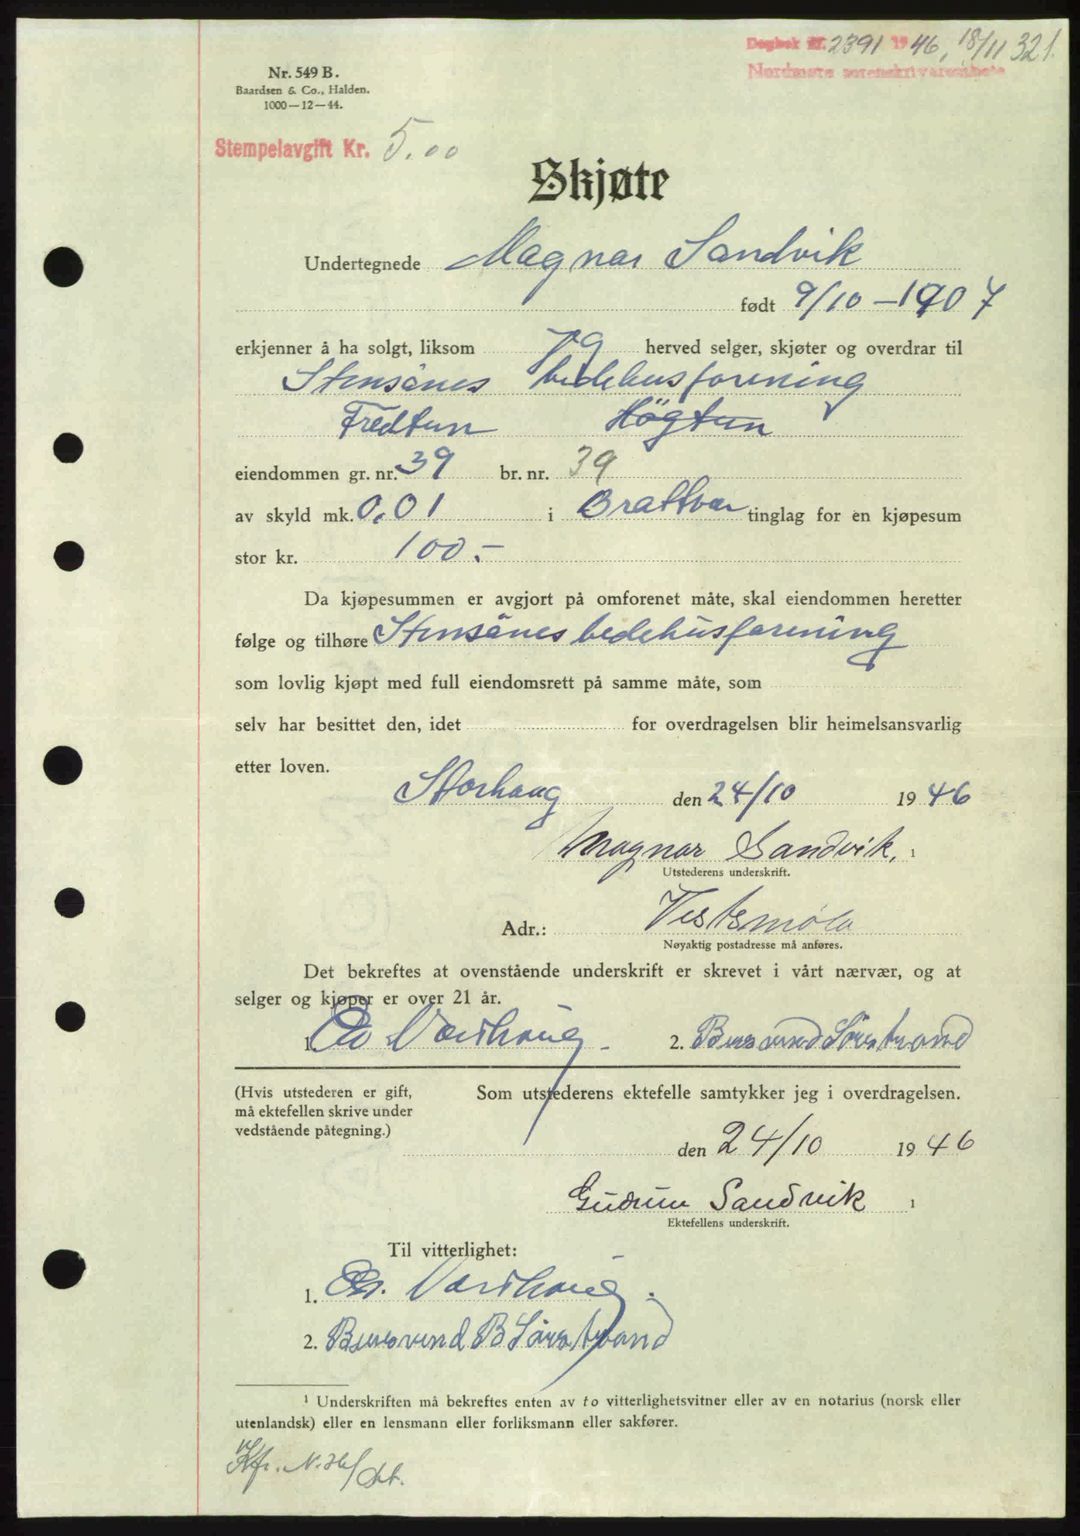 Dagbok nr. 2391 1946, 18/11 321.
Nordmøre sorenskriverembete
Nr. 549 B.
Baardsen & Co., Halden.
1000—12—44.
Stempelavgift Kr. 5.00
Skjøte
Undertegnede Magnar Sandvik
født 9/10 - 1907
erkjenner å ha solgt, liksom jeg herved selger, skjøter og overdrar til
Stensånes bedehusforening
Fredtun Högtun
eiendommen gr. nr. 39 br. nr. 39
av skyld mk. 0,01 i Brattvær tinglag for en kjøpesum
stor kr. 100.-
Da kjøpesummen er avgjort på omforenet måte, skal eiendommen heretter
følge og tilhøre Stensånes bedehusforening
som lovlig kjøpt med full eiendomsrett på samme måte, som
selv har besittet den, idet for overdragelsen blir heimelsansvarlig
etter loven.
Storhaug den 24/10 1946
Magnar Sandvik. ¹
Utstederens underskrift.
Adr.: Vestsmøla
Nøyaktig postadresse må anføres.
Det bekreftes at ovenstående underskrift er skrevet i vårt nærvær, og at
selger og kjøper er over 21 år.
1. Værihaug 2. Bersvend Sørstrand
(Hvis utstederen er gift,
må ektefellen skrive under
vedstående påtegning.)
Som utstederens ektefelle samtykker jeg i overdragelsen.
den 24/10 1946
Gudrun Sandvik ¹
Ektefellens underskrift.
Til vitterlighet:
1. Værihaug.
2. Bersvend B Sørstrand
¹ Underskriften må bekreftes enten av to vitterlighetsvitner eller av en notarius (norsk eller
utenlandsk) eller en lensmann eller forliksmann eller sakfører.
Kfr.